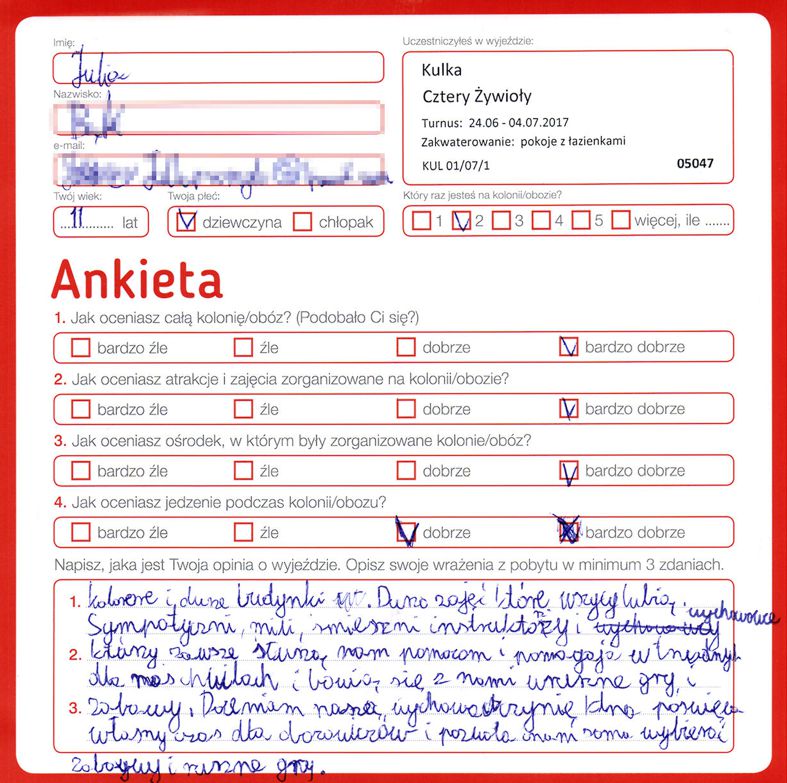 Imię:
Julia
Uczestniczyłeś w wyjeździe:
Kulka
Cztery Żywioły
Turnus: 24.06 - 04.07.2017
Zakwaterowanie: pokoje z łazienkami
KUL 01/07/1 05047
Nazwisko:
e-mail:
Twój wiek:
11 lat
Twoja płeć:
V dziewczyna chłopak
Który raz jesteś na kolonii/obozie?
1 V 2 3 4 5 więcej, ile .......
Ankieta
1. Jak oceniasz całą kolonię/obóz? (Podobało Ci się?)
bardzo źle źle dobrze V bardzo dobrze
2. Jak oceniasz atrakcje i zajęcia zorganizowane na kolonii/obozie?
bardzo źle źle dobrze V bardzo dobrze
3. Jak oceniasz ośrodek, w którym były zorganizowane kolonie/obóz?
bardzo źle źle dobrze V bardzo dobrze
4. Jak oceniasz jedzenie podczas kolonii/obozu?
bardzo źle źle V dobrze bardzo dobrze
Napisz, jaka jest Twoja opinia o wyjeździe. Opisz swoje wrażenia z pobytu w minimum 3 zdaniach.
1. i duże budynki. Dużo zajęć które lubią.
Sympatyczni, mili, śmieszni instruktorzy i wychowawce
2. którzy zawsze służą nam pomocom i pomogają w trudnych
dla nas chwilach i bawią się z nami gry, i
3. zabawy. naszą, wychowawczynię która poświęca
własny czas dla i pozwala nam samą wybierać
zabawy i gry.